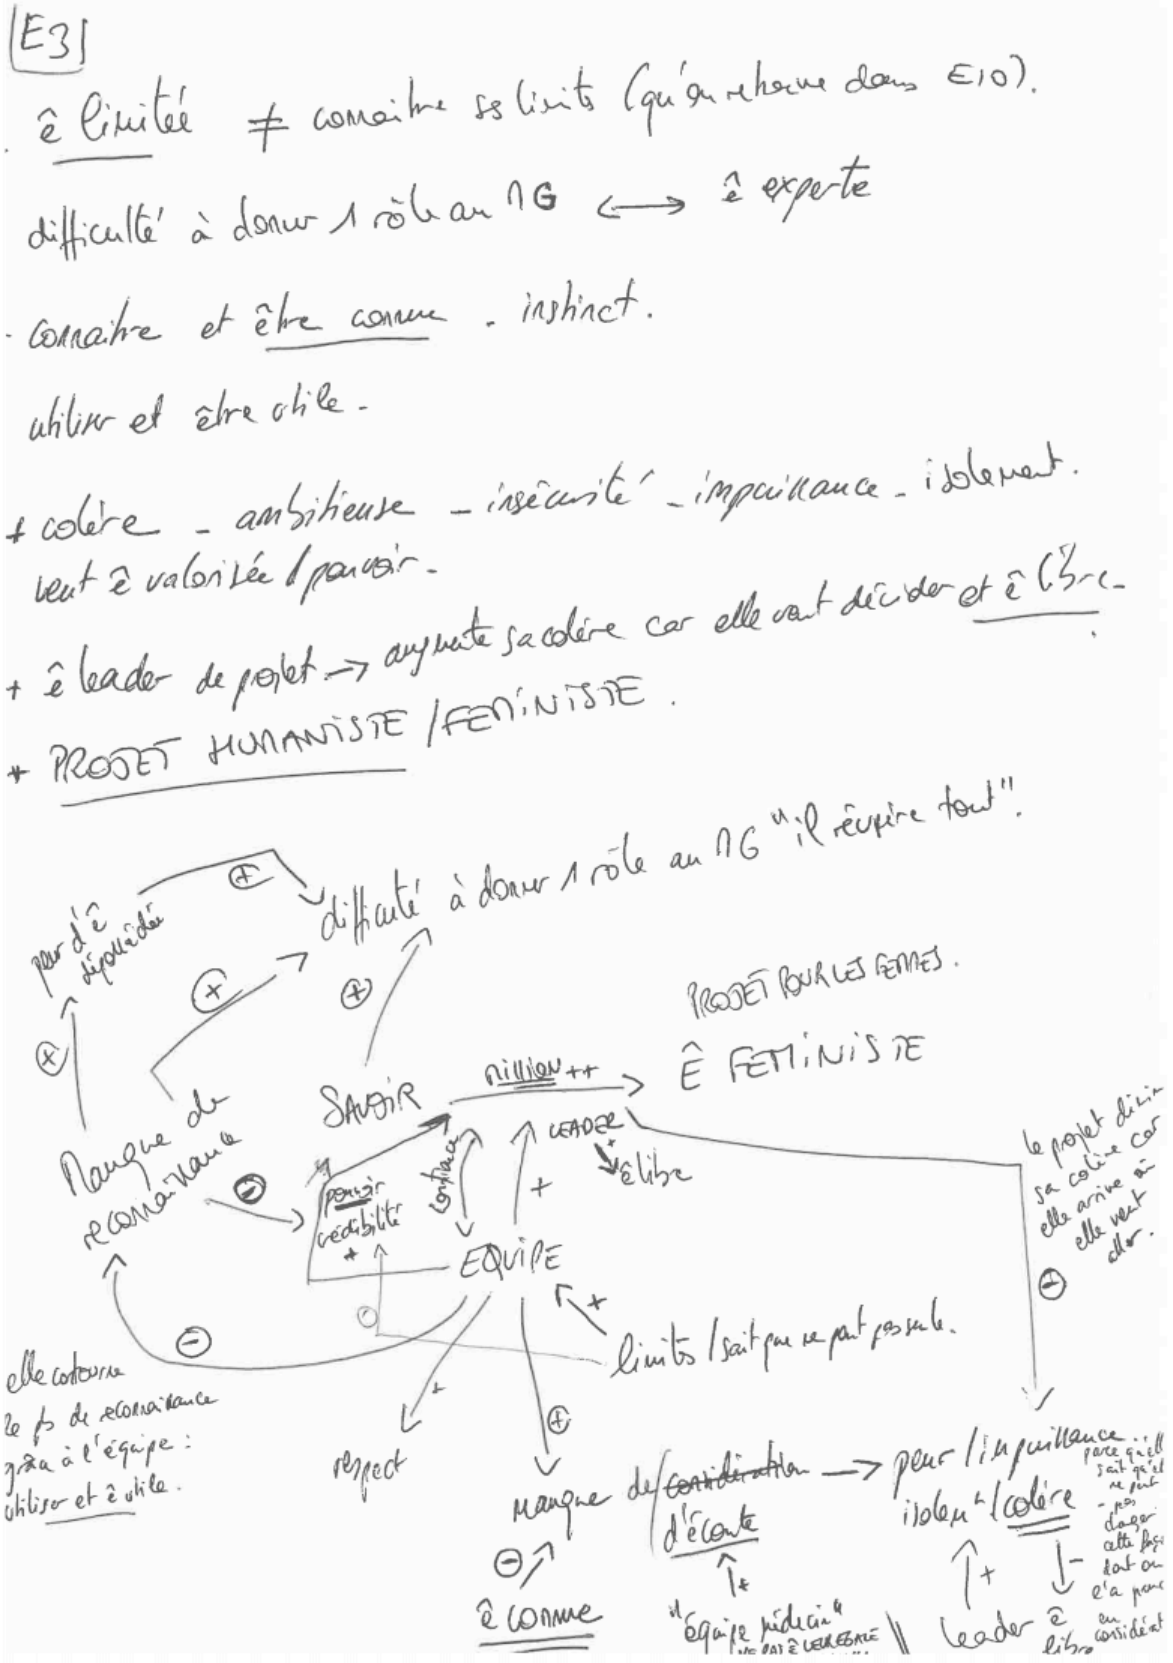 E3
. ê limitée ≠ connaitre ses limits (qu'on retrouve dans E10).
difficulté à donner 1 rôle au MG ⟷ ê experte
- connaitre et être connue - instinct.
utiliser et être utile -
+ colère - ambitieuse - insécurité - impuissance - isolement.
veut ê valorisée / pouvoir -
+ ê leader de projet → augmente sa colère car elle veut décider et ê libre -
+ PROJET HUMANISTE / FEMINISTE .
peur d'ê
dépossédée
+
difficulté à donner 1 rôle au MG "il récupère tout".
+
+
+
PROJET POUR LES FEMMES .
Ê FEMINISTE
SAVOIR
mission ++
LEADER
+
ê libre
Manque de
reconnaissance
-
pouvoir
crédibilité
+
confiance
+
EQUIPE
le projet dimin
sa colère car
elle arrive où
elle veut
aller.
-
+
limites / sait que ne peut pas seule.
-
elle contourne
le ps de reconnaissance
grâce à l'équipe :
utiliser et ê utile.
+
respect
+
manque de / considération
d'écoute
→ peur / impuissance
isolemt / colère
parce qu'ell
sait qu'el
ne peut
pas
cette faç
dont on
l'a
en
considérat
-
ê connue
+
"équipe médecin"
NE PAS Ê LEUR EGALE
+
leader
-
ê
libre